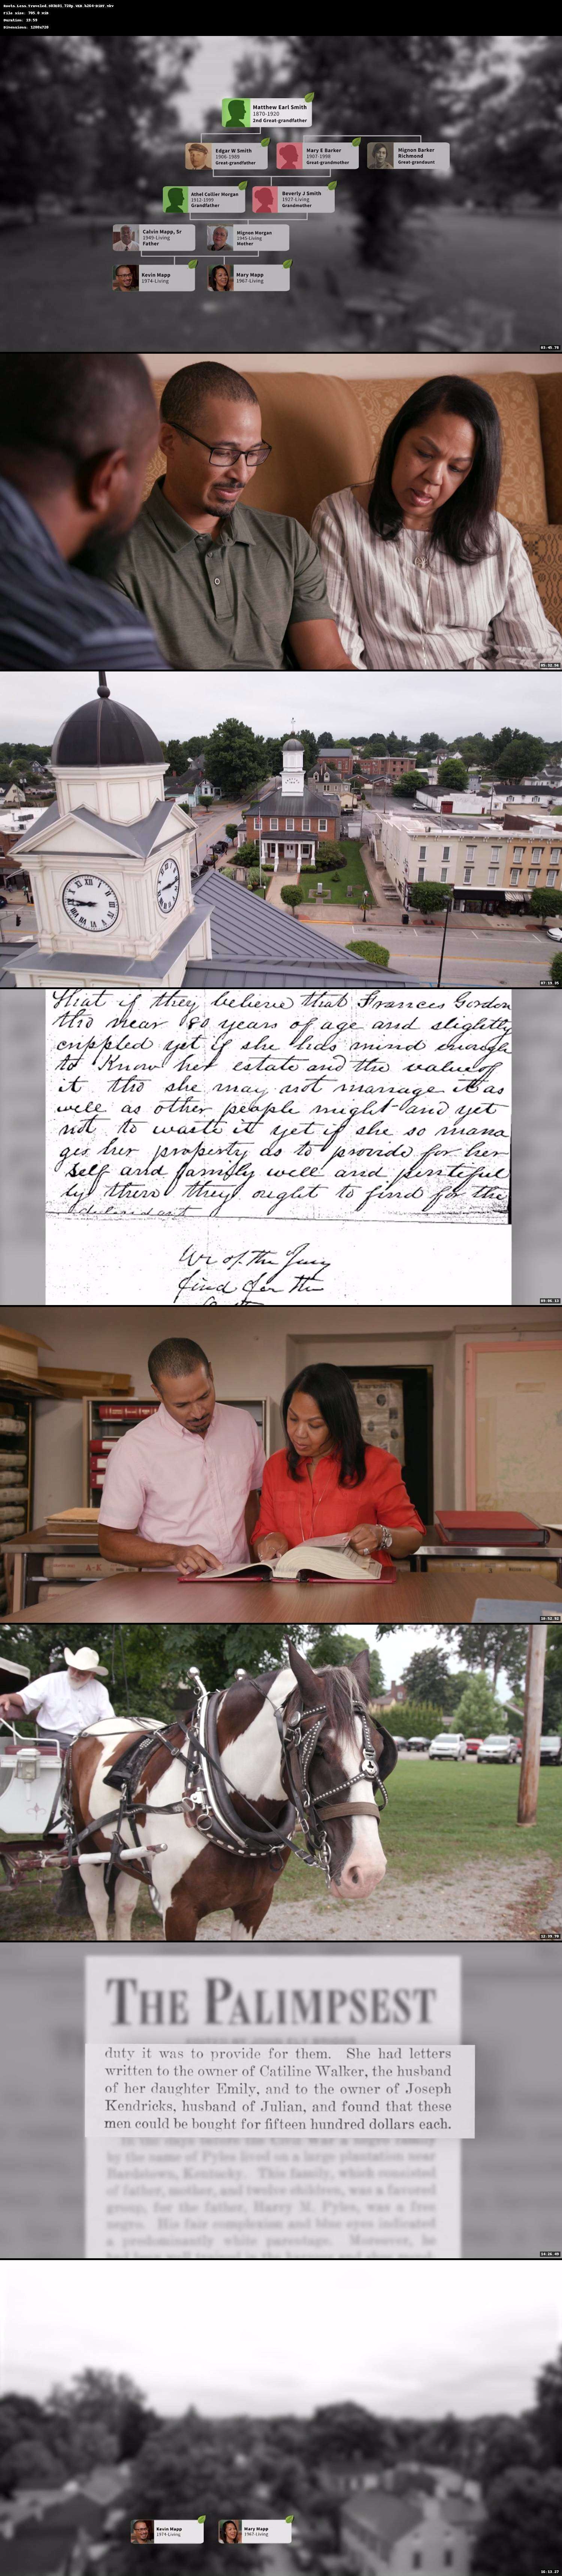 Duration: 18:59
Dimensions: 1280x720
Matthew Earl Smith
1870-1920
2nd Great-grandfather
Edgar W Smith
1906-1989
Great-grandfather
Mary E Barker
1907-1998
Great-grandmother
Mignon Barker
Richmond
Great-grandaunt
Athel Collier Morgan
1912-1999
Grandfather
Beverly J Smith
1927-Living
Grandmother
Calvin Mapp, Sr
1949-Living
Father
Mignon Morgan
1945-Living
Mother
Kevin Mapp
1974-Living
Mary Mapp
1967-Living
that if they believe that Frances Gordon
tho near 80 years of age and slightly
crippled yet if she has mind enough
to Know her estate and the value of
it tho she may not manage it as
well as other people might and yet
not to waste it yet if she so mana
ges her property as to provide for her
self and family well and plentiful
ly then they ought to find for the
defendant
We of the Jury
find for the
THE PALIMPSEST
duty it was to provide for them. She had letters
written to the owner of Catiline Walker, the husband
of her daughter Emily, and to the owner of Joseph
Kendricks, husband of Julian, and found that these
men could be bought for fifteen hundred dollars each.
by the name of Pyles lived on a large plantation near
Bardstown, Kentucky. This family, which consisted
of father, mother, and twelve children, was a favored
group, for the father, Harry M. Pyles, was a free
negro. His fair complexion and blue eyes indicated
a predominantly white parentage. Moreover, he
Kevin Mapp
1974-Living
Mary Mapp
1967-Living